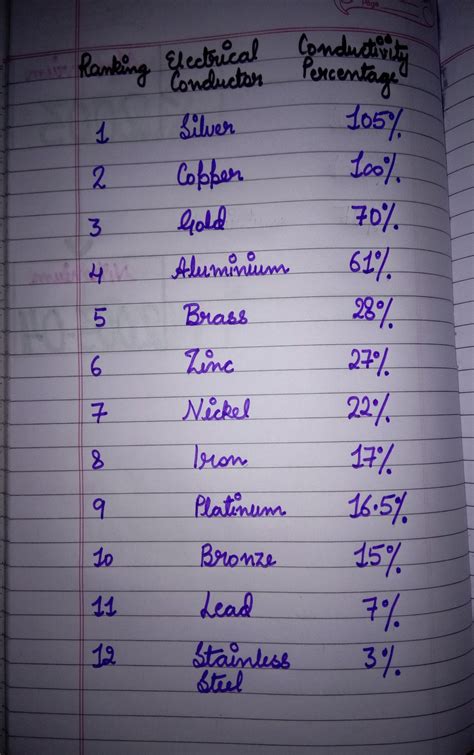 Page
Ranking Electrical Conductor Conductivity Percentage
1 Silver 105%
2 Copper 100%
3 Gold 70%
4 Aluminium 61%
5 Brass 28%
6 Zinc 27%
7 Nickel 22%
8 Iron 17%
9 Platinum 16.5%
10 Bronze 15%
11 Lead 7%
12 Stainless Steel 3%